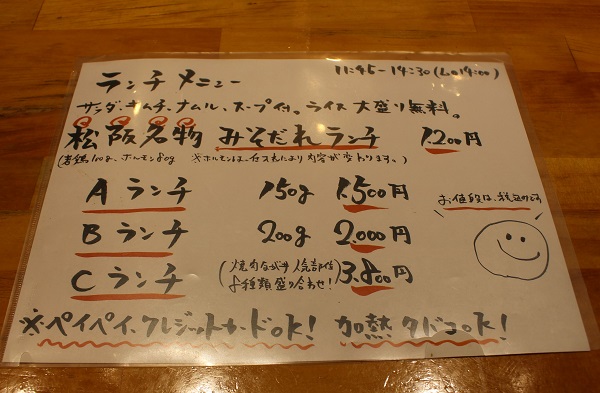 ランチ メニュー 11:45-14:30(L.O14:00)
サラダ、キムチ、ナムル、スープ付。ライス 大盛り無料。
松阪名物 みそだれランチ 1.200円
(若鶏100g、ホルモン80g ※ホルモンは、仕入れにより内容が変わります。)
A ランチ 150g 1.500円
お値段は、税込めです
B ランチ 200g 2.000円
C ランチ (焼肉 人気部位 8種類盛り合わせ!) 3.800円
※ペイペイ、クレジットカードok! 加熱タバコok!